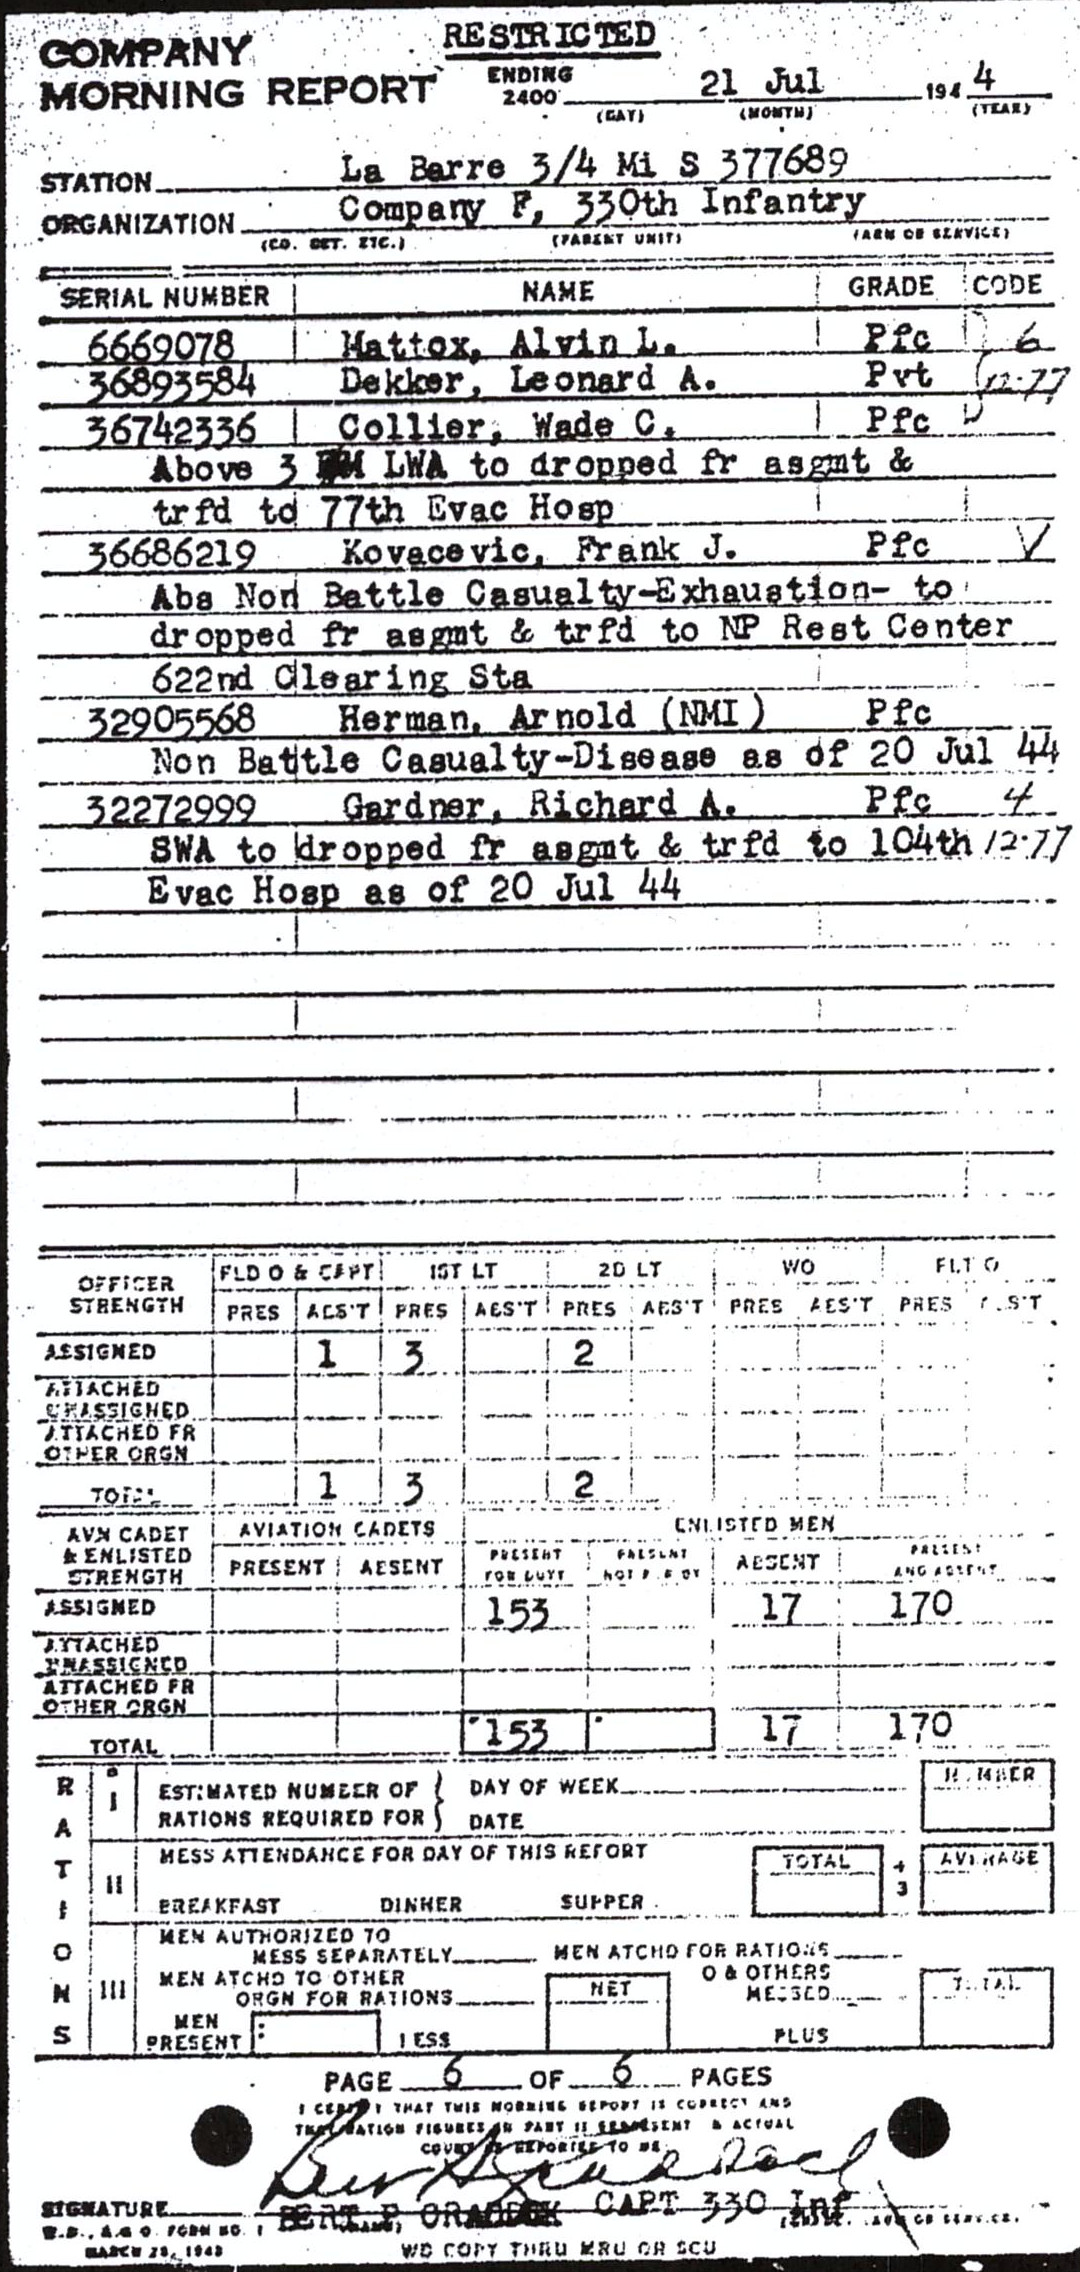 RESTRICTED
COMPANY
MORNING REPORT
ENDING
2400 21 Jul 194 4
(DAY) (MONTH) (YEAR)
STATION La Barre 3/4 Mi S 377689
ORGANIZATION Company F, 330th Infantry
(CO. DET. ETC.) (PARENT UNIT) (ARM OR SERVICE)
SERIAL NUMBER NAME GRADE CODE
6669078 Mattox, Alvin L. Pfc 6
36893584 Dekker, Leonard A. Pvt 12-77
36742336 Collier, Wade C. Pfc
Above 3 EM LWA to dropped fr asgmt &
trfd to 77th Evac Hosp
36686219 Kovacevic, Frank J. Pfc √
Abs Non Battle Casualty-Exhaustion- to
dropped fr asgmt & trfd to NP Rest Center
622nd Clearing Sta
32905568 Herman, Arnold (NMI) Pfc
Non Battle Casualty-Disease as of 20 Jul 44
32272999 Gardner, Richard A. Pfc 4
SWA to dropped fr asgmt & trfd to 104th 12-77
Evac Hosp as of 20 Jul 44
OFFICER STRENGTH FLD O & CAPT 1ST LT 2D LT WO FLT O
PRES ABS'T PRES ABS'T PRES ABS'T PRES ABS'T PRES ABS'T
ASSIGNED 1 3 2
ATTACHED
UNASSIGNED
ATTACHED FR
OTHER ORGN
TOTAL 1 3 2
AVN CADET & ENLISTED STRENGTH AVIATION CADETS ENLISTED MEN
PRESENT ABSENT PRESENT FOR DUTY PRESENT NOT FOR DY ABSENT PRESENT AND ABSENT
ASSIGNED 153 17 170
ATTACHED
UNASSIGNED
ATTACHED FR
OTHER ORGN
TOTAL 153 17 170
RATIONS
I ESTIMATED NUMBER OF DAY OF WEEK NUMBER
RATIONS REQUIRED FOR DATE
II MESS ATTENDANCE FOR DAY OF THIS REPORT TOTAL ÷ 3 AVERAGE
BREAKFAST DINNER SUPPER
III MEN AUTHORIZED TO
MESS SEPARATELY MEN ATCHD FOR RATIONS
MEN ATCHD TO OTHER
ORGN FOR RATIONS NET O & OTHERS
MESSED TOTAL
MEN
PRESENT LESS PLUS
PAGE 6 OF 6 PAGES
I CERTIFY THAT THIS MORNING REPORT IS CORRECT AND
THE RATION FIGURES IN PART II REPRESENT A ACTUAL
COUNT AS REPORTED TO ME
Bert P Craddock
SIGNATURE BERT P CRADDOCK CAPT 330 Inf
W.D., A.G.O. FORM NO. 1
MARCH 28, 1943
WD COPY THRU MRU OR SCU